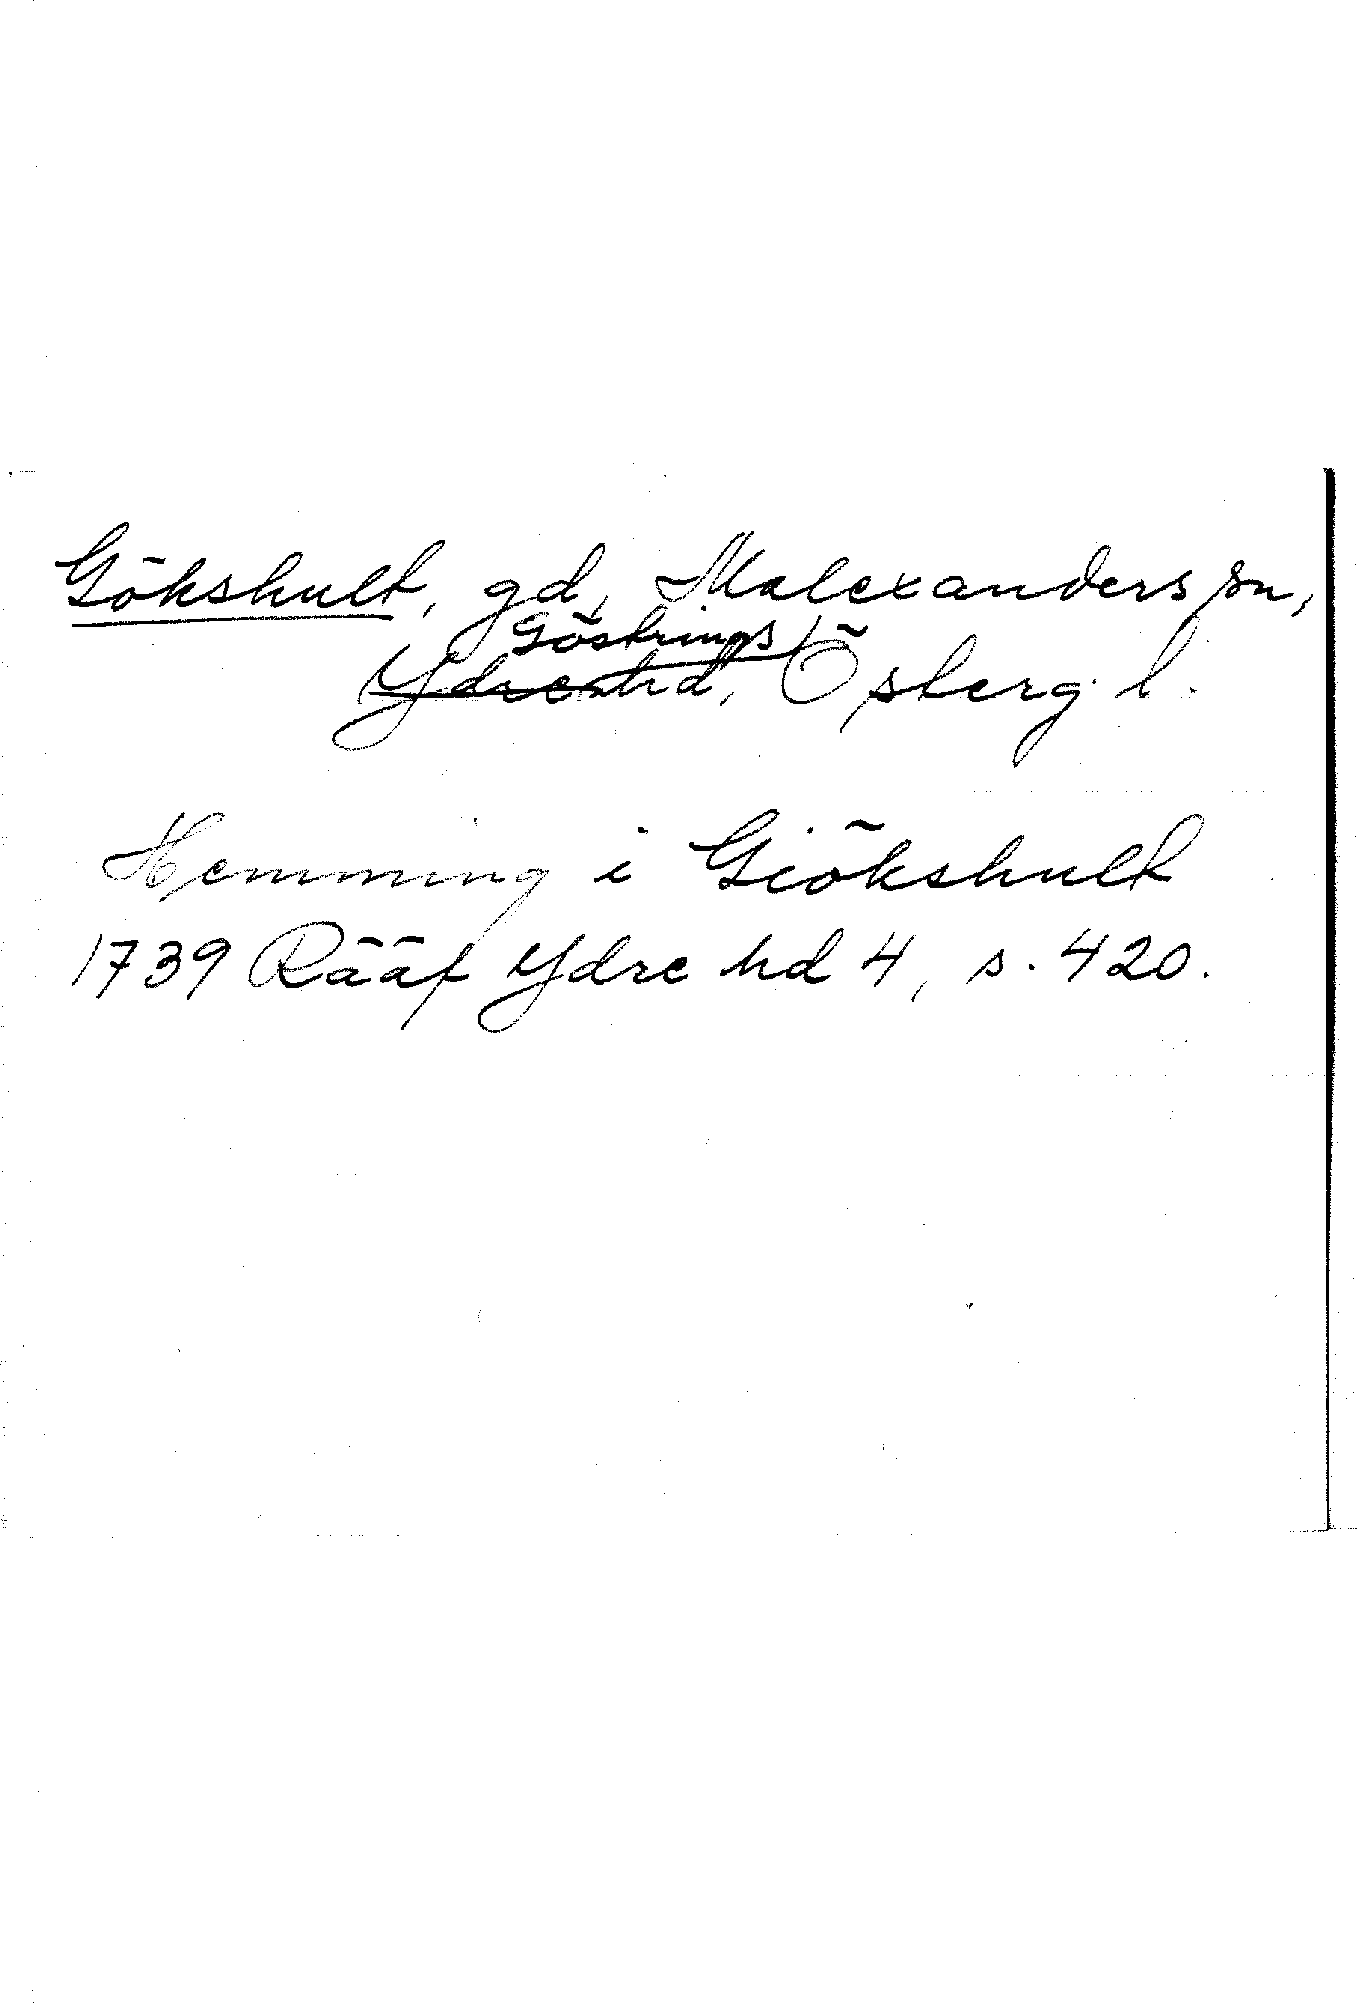 Gökshult, gd, Malexanders sn,
Göstrings
Ydre hd, Östergl.
Hemming i Giökshult
1739 Rääf Ydre hd 4, s. 420.